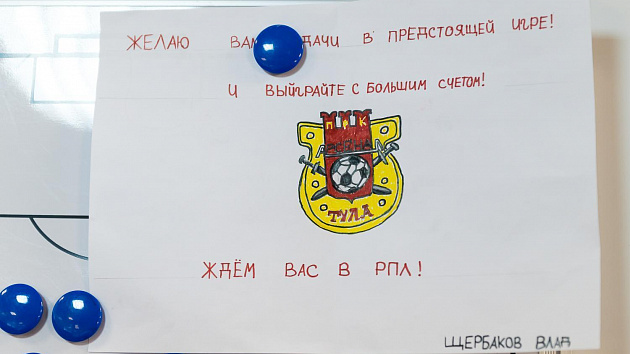 ЖЕЛАЮ ВАМ ДАЧИ В ПРЕДСТОЯЩЕЙ ИГРЕ!
И ВЫЙГРАЙТЕ С БОЛЬШИМ СЧЕТОМ!
ПФК
АРСЕНАЛ
ТУЛА
ЖДЁМ ВАС В РПЛ!
ЩЕРБАКОВ ВЛАД